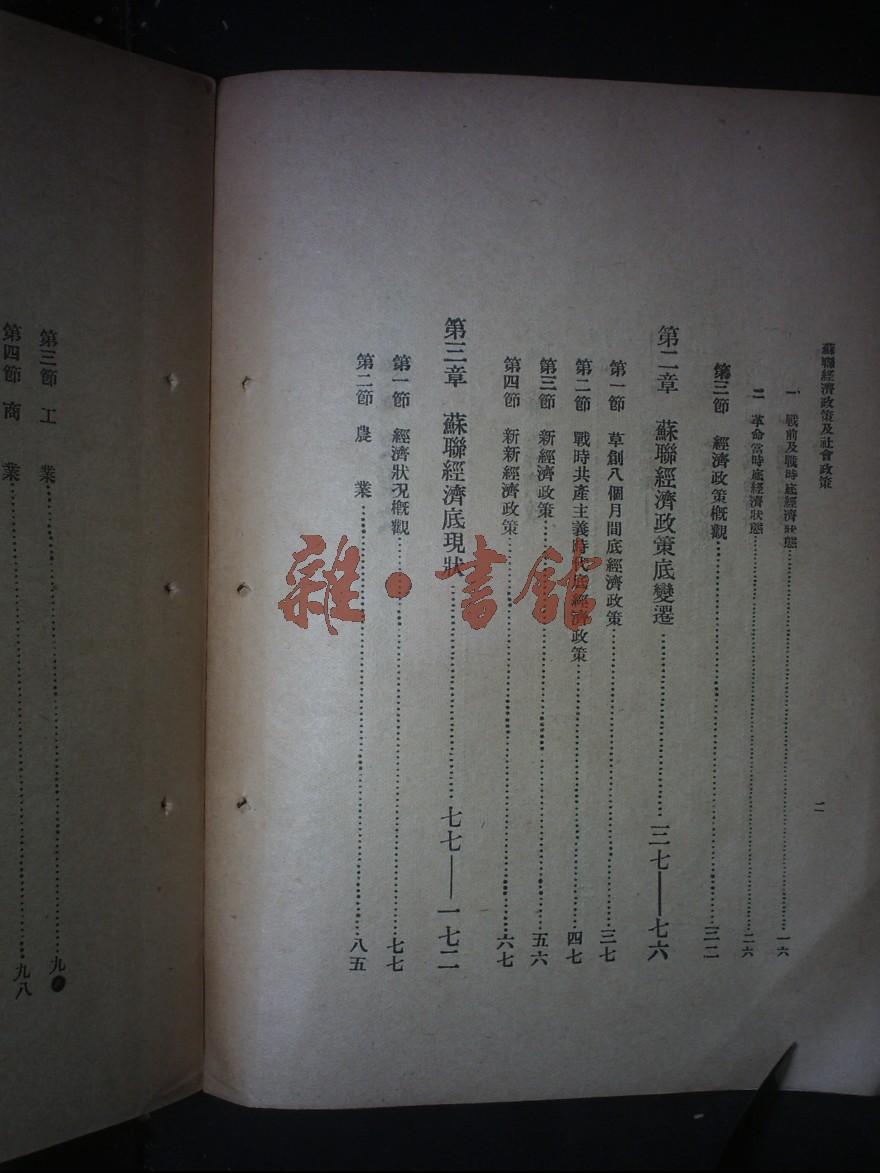 蘇聯經濟政策及社會政策
二
一 戰前及戰時底經濟狀態……一六
二 革命當時底經濟狀態……二六
第三節 經濟政策概觀……三二
第二章 蘇聯經濟政策底變遷……三七——七六
第一節 草創八個月間底經濟政策……三七
第二節 戰時共產主義時代底經濟政策……四七
第三節 新經濟政策……五六
第四節 新新經濟政策……六七
第三章 蘇聯經濟底現狀……七七——一七二
第一節 經濟狀況概觀……七七
第二節 農業……八五
第三節 工業……九〇
第四節 商業……九八
雜·書館